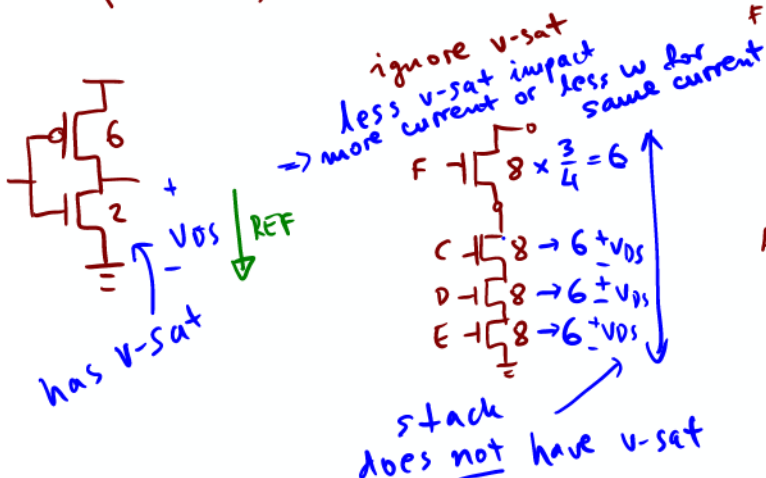 F
ignore v-sat
less v-sat impact
=> more current or less w for
same current
6
2
+
VDS
-
REF
has v-sat
F 8 × 3/4 = 6
C 8 → 6 + VDS -
D 8 → 6 + VDS -
E 8 → 6 + VDS -
stack
does not have v-sat